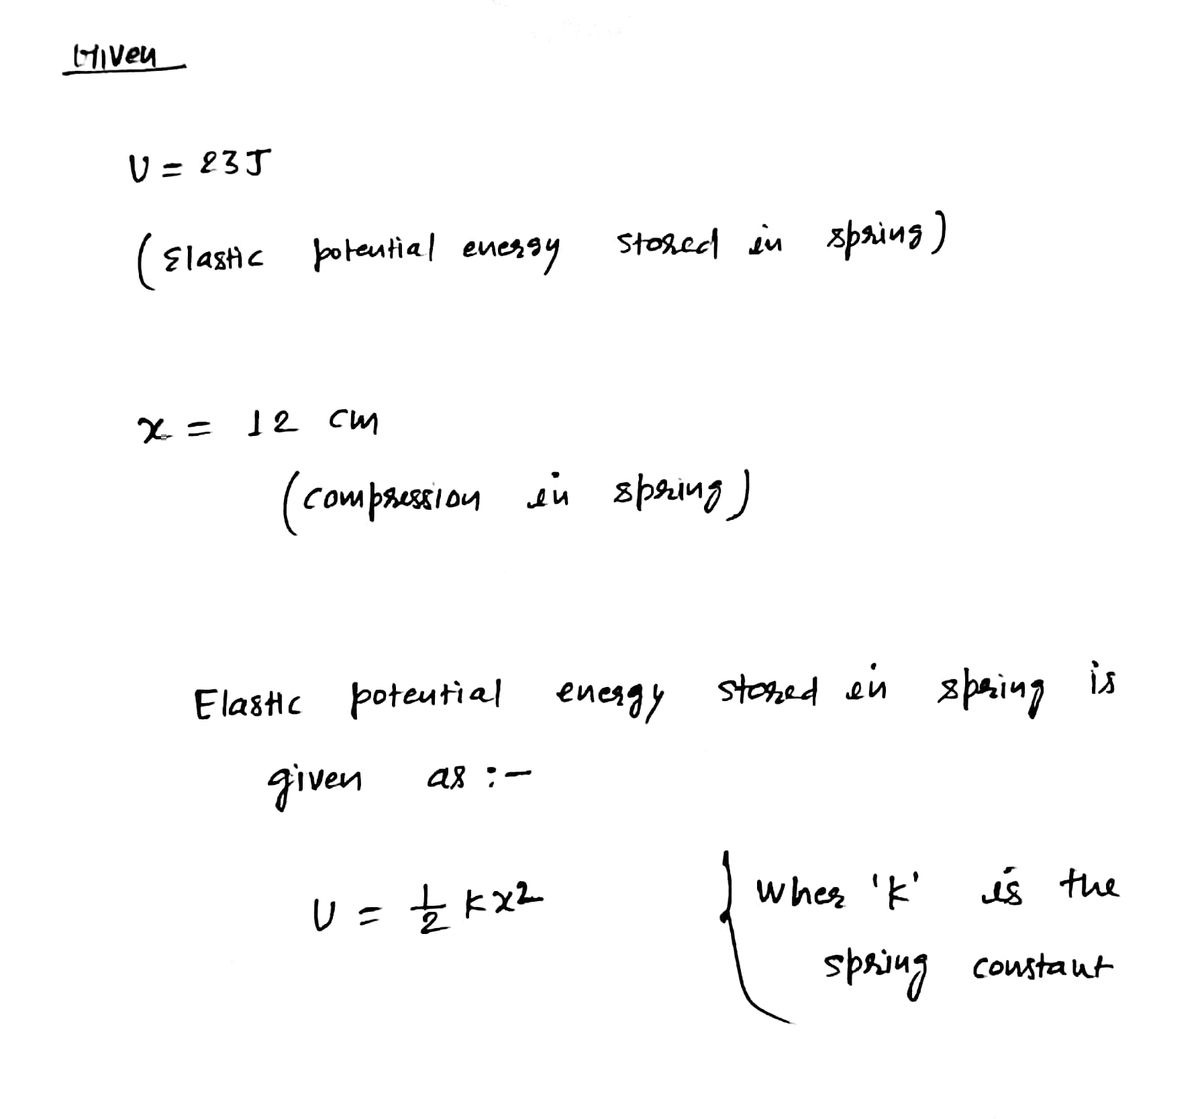 Given
U = 23J
(Elastic potential energy stored in spring)
x = 12 cm
(compression in spring)
Elastic potential energy stored in spring is
given as :-
U = 1/2 kx2 { wher 'k' is the
spring constant